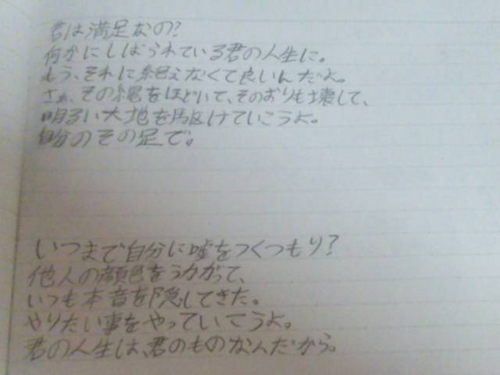 君は満足なの?
何かにしばられている君の人生に。
もう、それに絶えなくて良いんだよ。
さぁ、その縄をほどいて、そのおりも壊して、
明るい大地を駆けていこうよ。
自分のその足で。
いつまで自分に嘘をつくつもり?
他人の顔色をうかがって、
いつも本音を隠してきた。
やりたい事をやっていこうよ。
君の人生は、君のものなんだから。